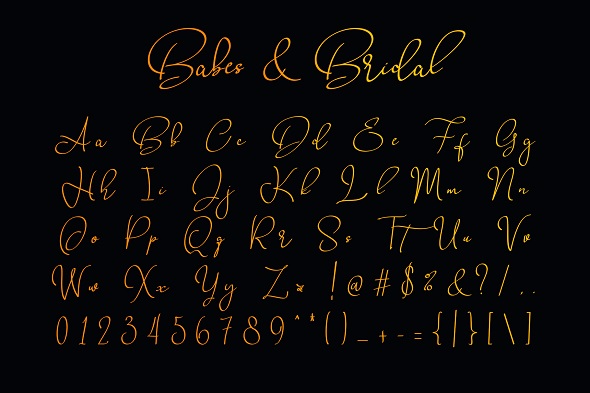 Babes & Bridal
Aa Bb Cc Dd Ee Ff Gg
Hh Ii Jj Kk Ll Mm Nn
Oo Pp Qq Rr Ss Tt Uu Vv
Ww Xx Yy Zz ! @ # $ % & ? / . .
0 1 2 3 4 5 6 7 8 9 ^ * ( ) _ + - = { | } [ \ ]